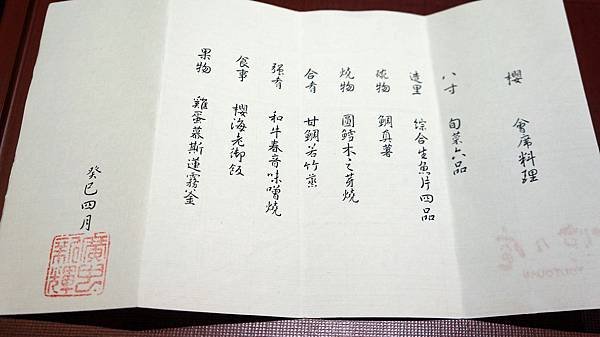 櫻 會席料理
八寸 旬菜六品
造里 綜合生魚片四品
碗物 鯛真薯
燒物 圓鱈木之芽燒
合肴 甘鯛若竹煮
強肴 和牛春音味噌燒
食事 櫻海老御飯
果物 雞蛋慕斯蓮霧釜
癸巳四月